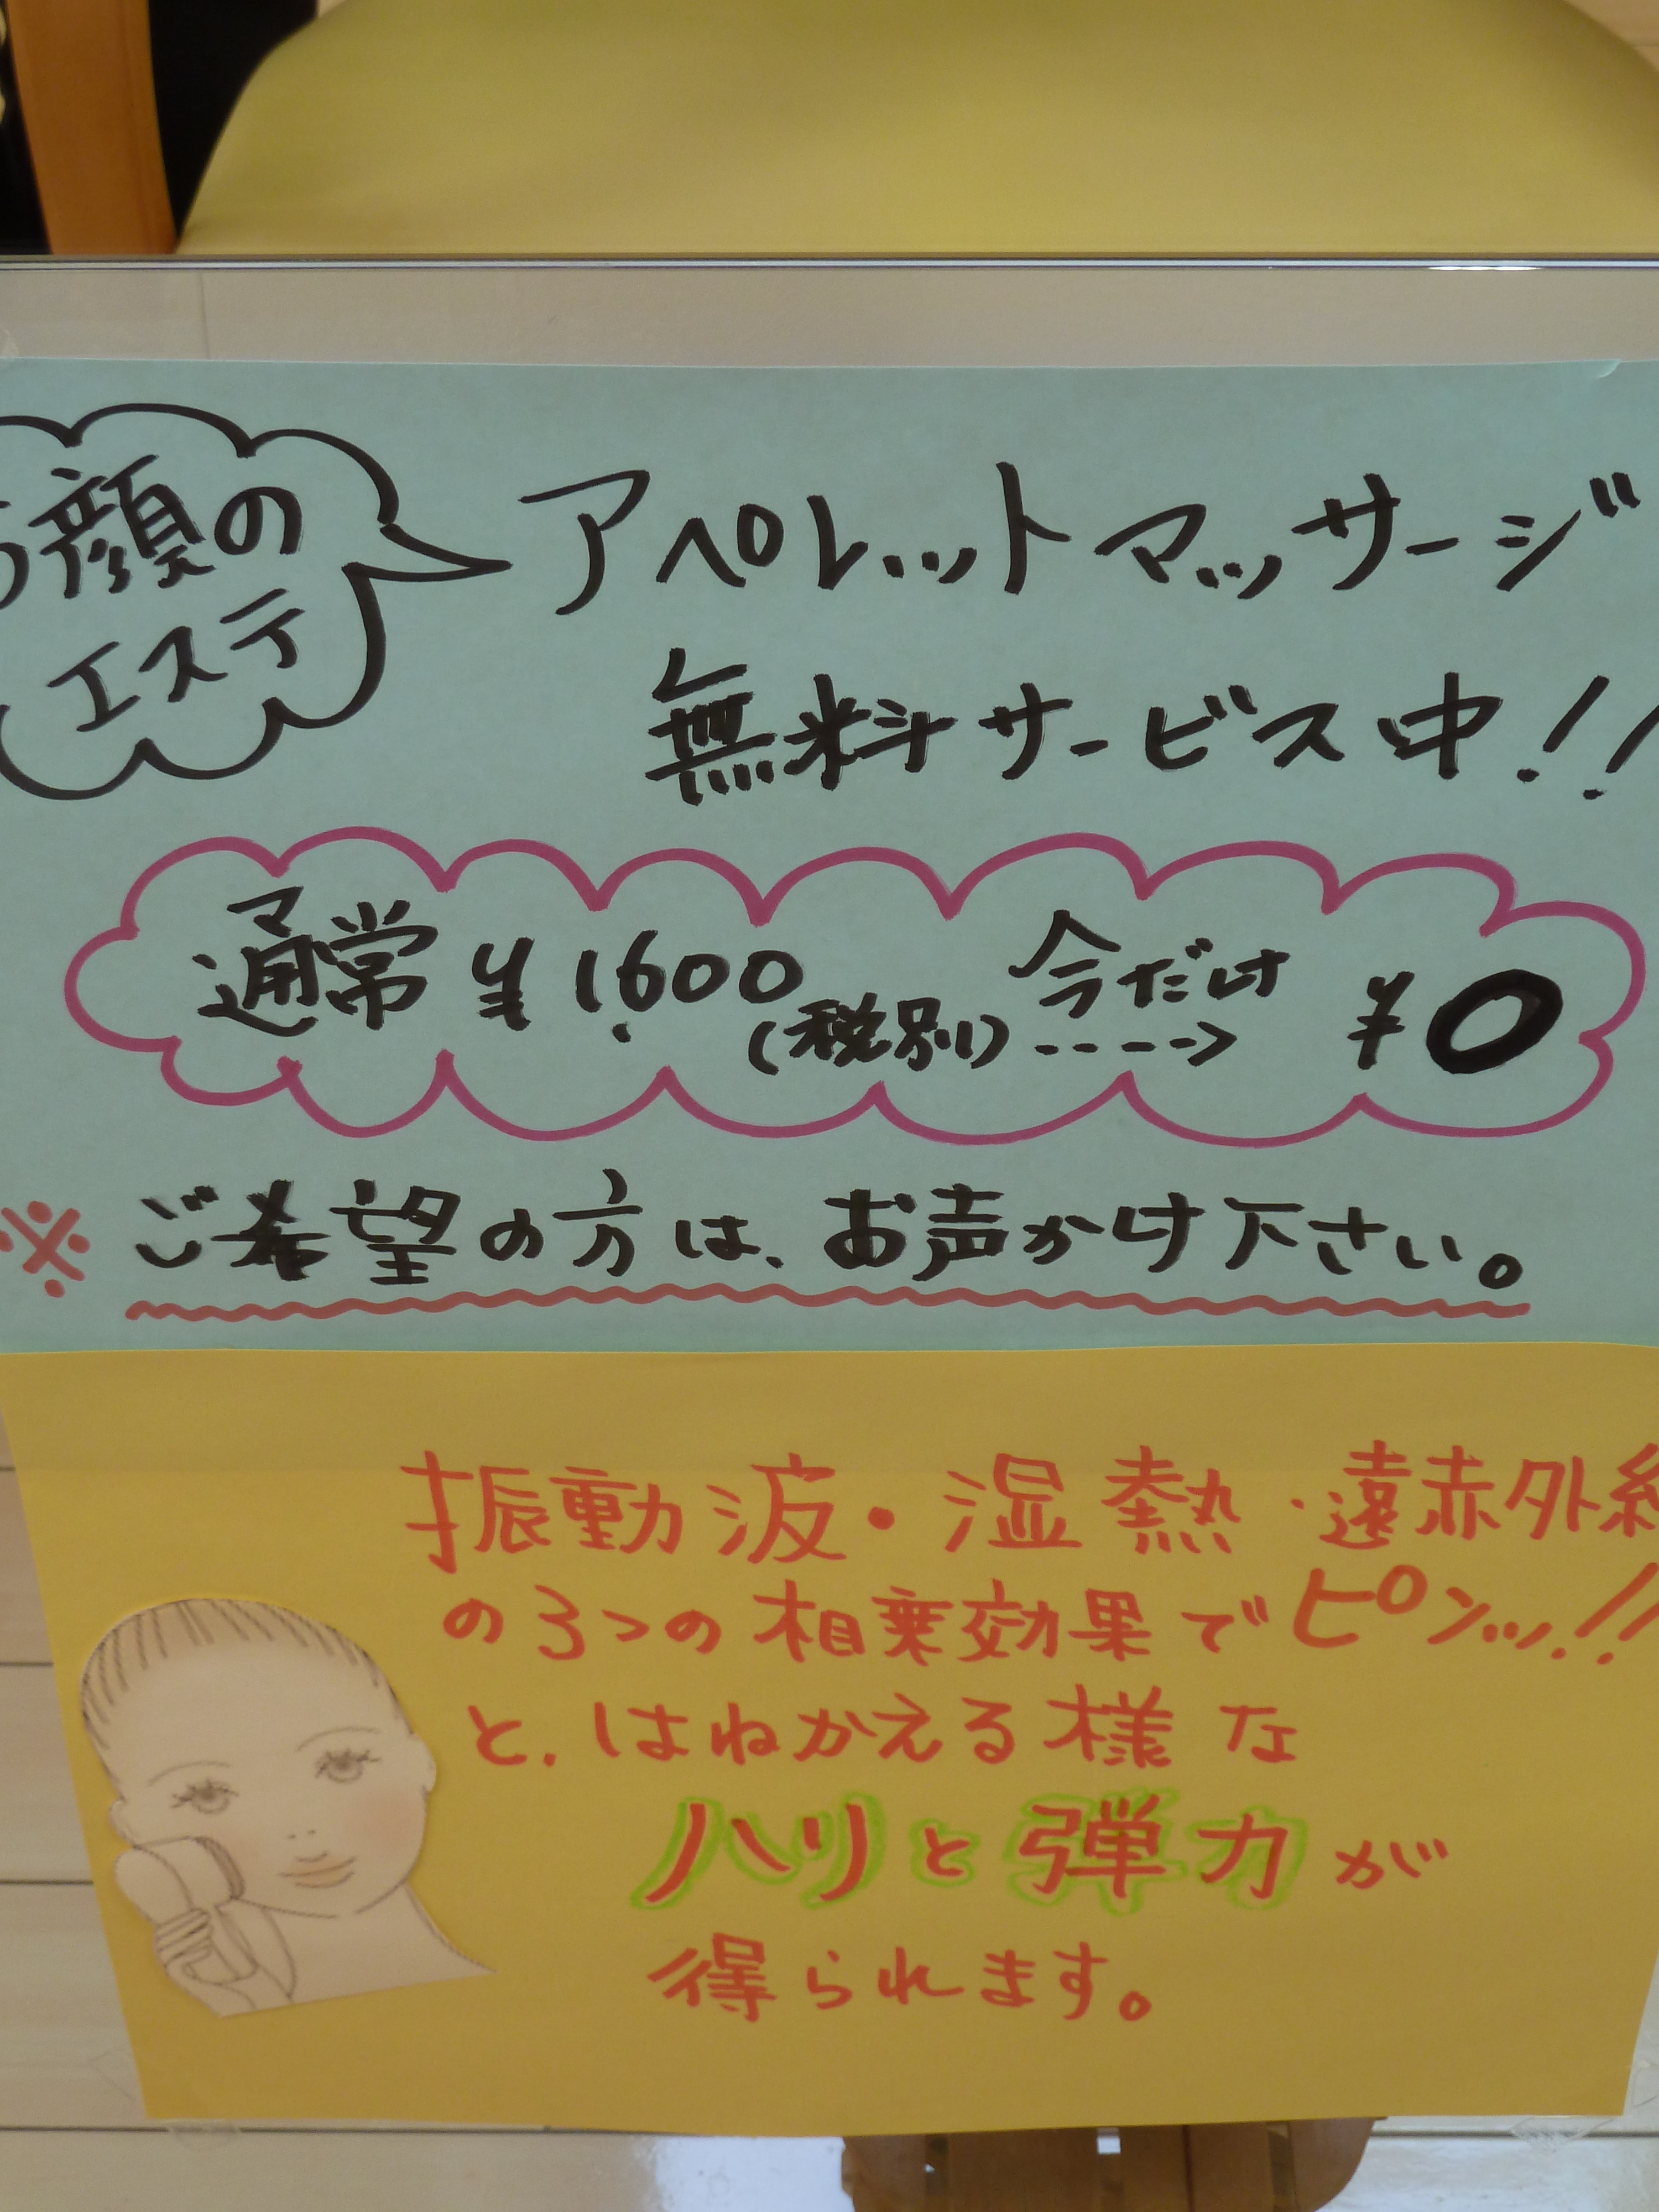 お顔の
エステ
アペレットマッサージ
無料サービス中!!
通常 ¥1,600
(税別)
今だけ
¥0
※ご希望の方は、お声かけ下さい。
振動波・湿熱・遠赤外線
の3つの相乗効果でピンッ!!
と、はねかえる様な
ハリと弾力が
得られます。